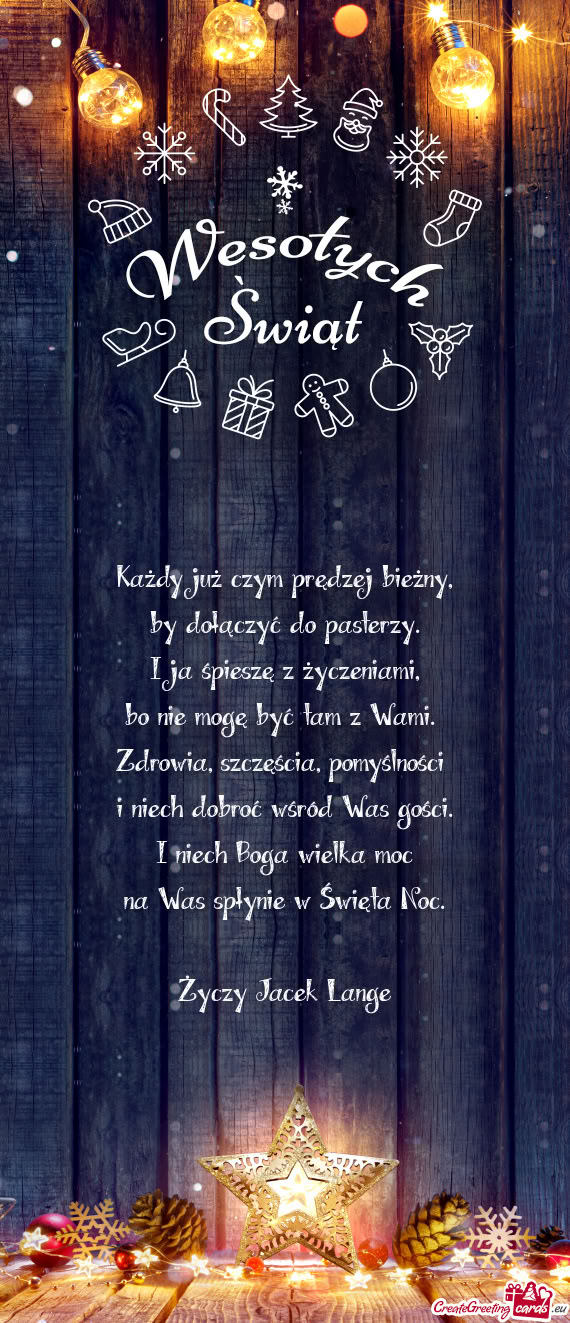 Wesołych
Świąt
Każdy już czym prędzej bieżny,
by dołączyć do pasterzy.
I ja śpieszę z życzeniami,
bo nie mogę być tam z Wami.
Zdrowia, szczęścia, pomyślności
i niech dobroć wśród Was gości.
I niech Boga wielka moc
na Was spłynie w Święta Noc.
Życzy Jacek Lange
CreateGreetingcards.eu